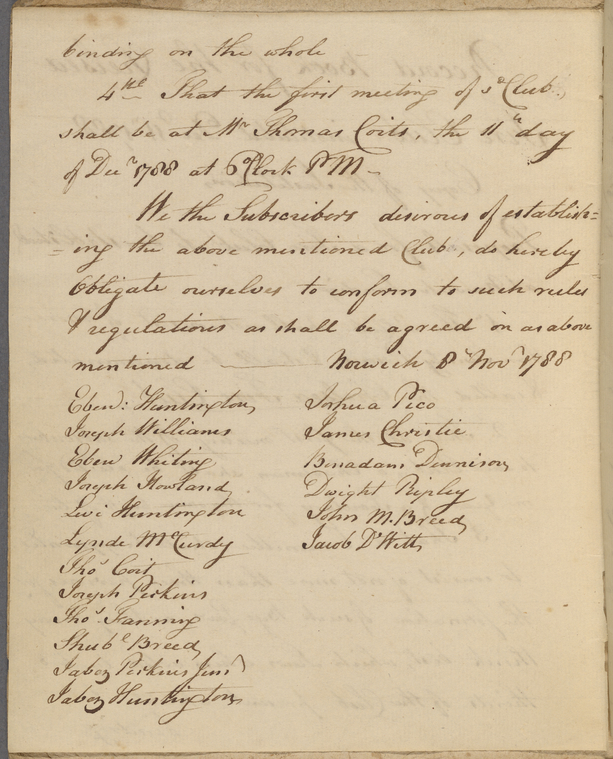 binding on the whole
4the That the first meeting of sd Club
shall be at Mr Thomas Coits, the 11th day
of Decr 1788 at 6 oClock PM -
We the Subscribors desirous of establish=
=ing the above mentioned Club, do hereby
Obligate ourselves to conform to such rules
& regulations as shall be agreed on as above
mentioned — Norwich 8th Novr 1788
Eben: Huntington
Joseph Williams
Eben Whiting
Joseph Howland
Levi Huntington
Lynde McCurdy
Thos Coit
Joseph Perkins
Thos Fanning
Shubl Breed
Jabez Perkins Junr
Jabez Huntington
Joshua Pico
James Christie
Benadam Dennison
Dwight Ripley
John M. Breed
Jacob D'Witt